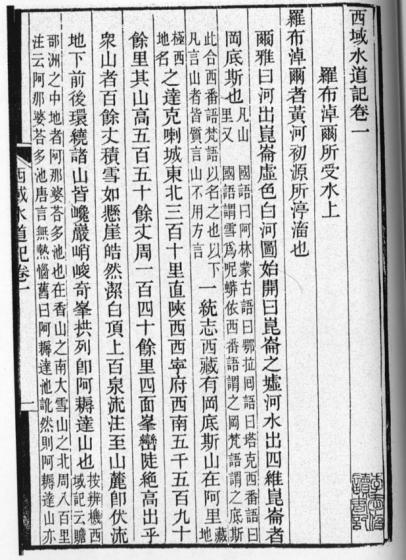 西域水道記卷一
羅布淖爾所受水上
羅布淖爾者黃河初源所渟滀也
爾雅曰河出崑崙虛色白河圖始開曰崑崙之墟河水出四維崑崙者
岡底斯也
凡山 國語曰阿林蒙古語曰鄂拉囘語曰塔克西番語曰
里又 國語謂雪爲呢蟒依西番語謂之岡梵語謂之底斯
此合西番語梵語以名之也以下
凡言山者皆質言山不用方言
一統志西藏有岡底斯山在阿里
藏
地
極西
地名
之達克喇城東北三百十里直陝西西寧府西南五千五百九十
餘里其山高五百五十餘丈周一百四十餘里四面峯巒陡絶高出乎
衆山者百餘丈積雪如懸崖皓然潔白頂上百泉流注至山麓卽伏流
地下前後環繞諸山皆巉巖峭峻奇峯拱列卽阿耨達山也
按辨機西
域記云贍
部洲之中地者阿那婆荅多池也在香山之南大雪山之北周八百里
注云阿那婆荅多池唐言無熱惱舊曰阿耨達池訛然則阿耨達山亦
西域水道記卷一
一